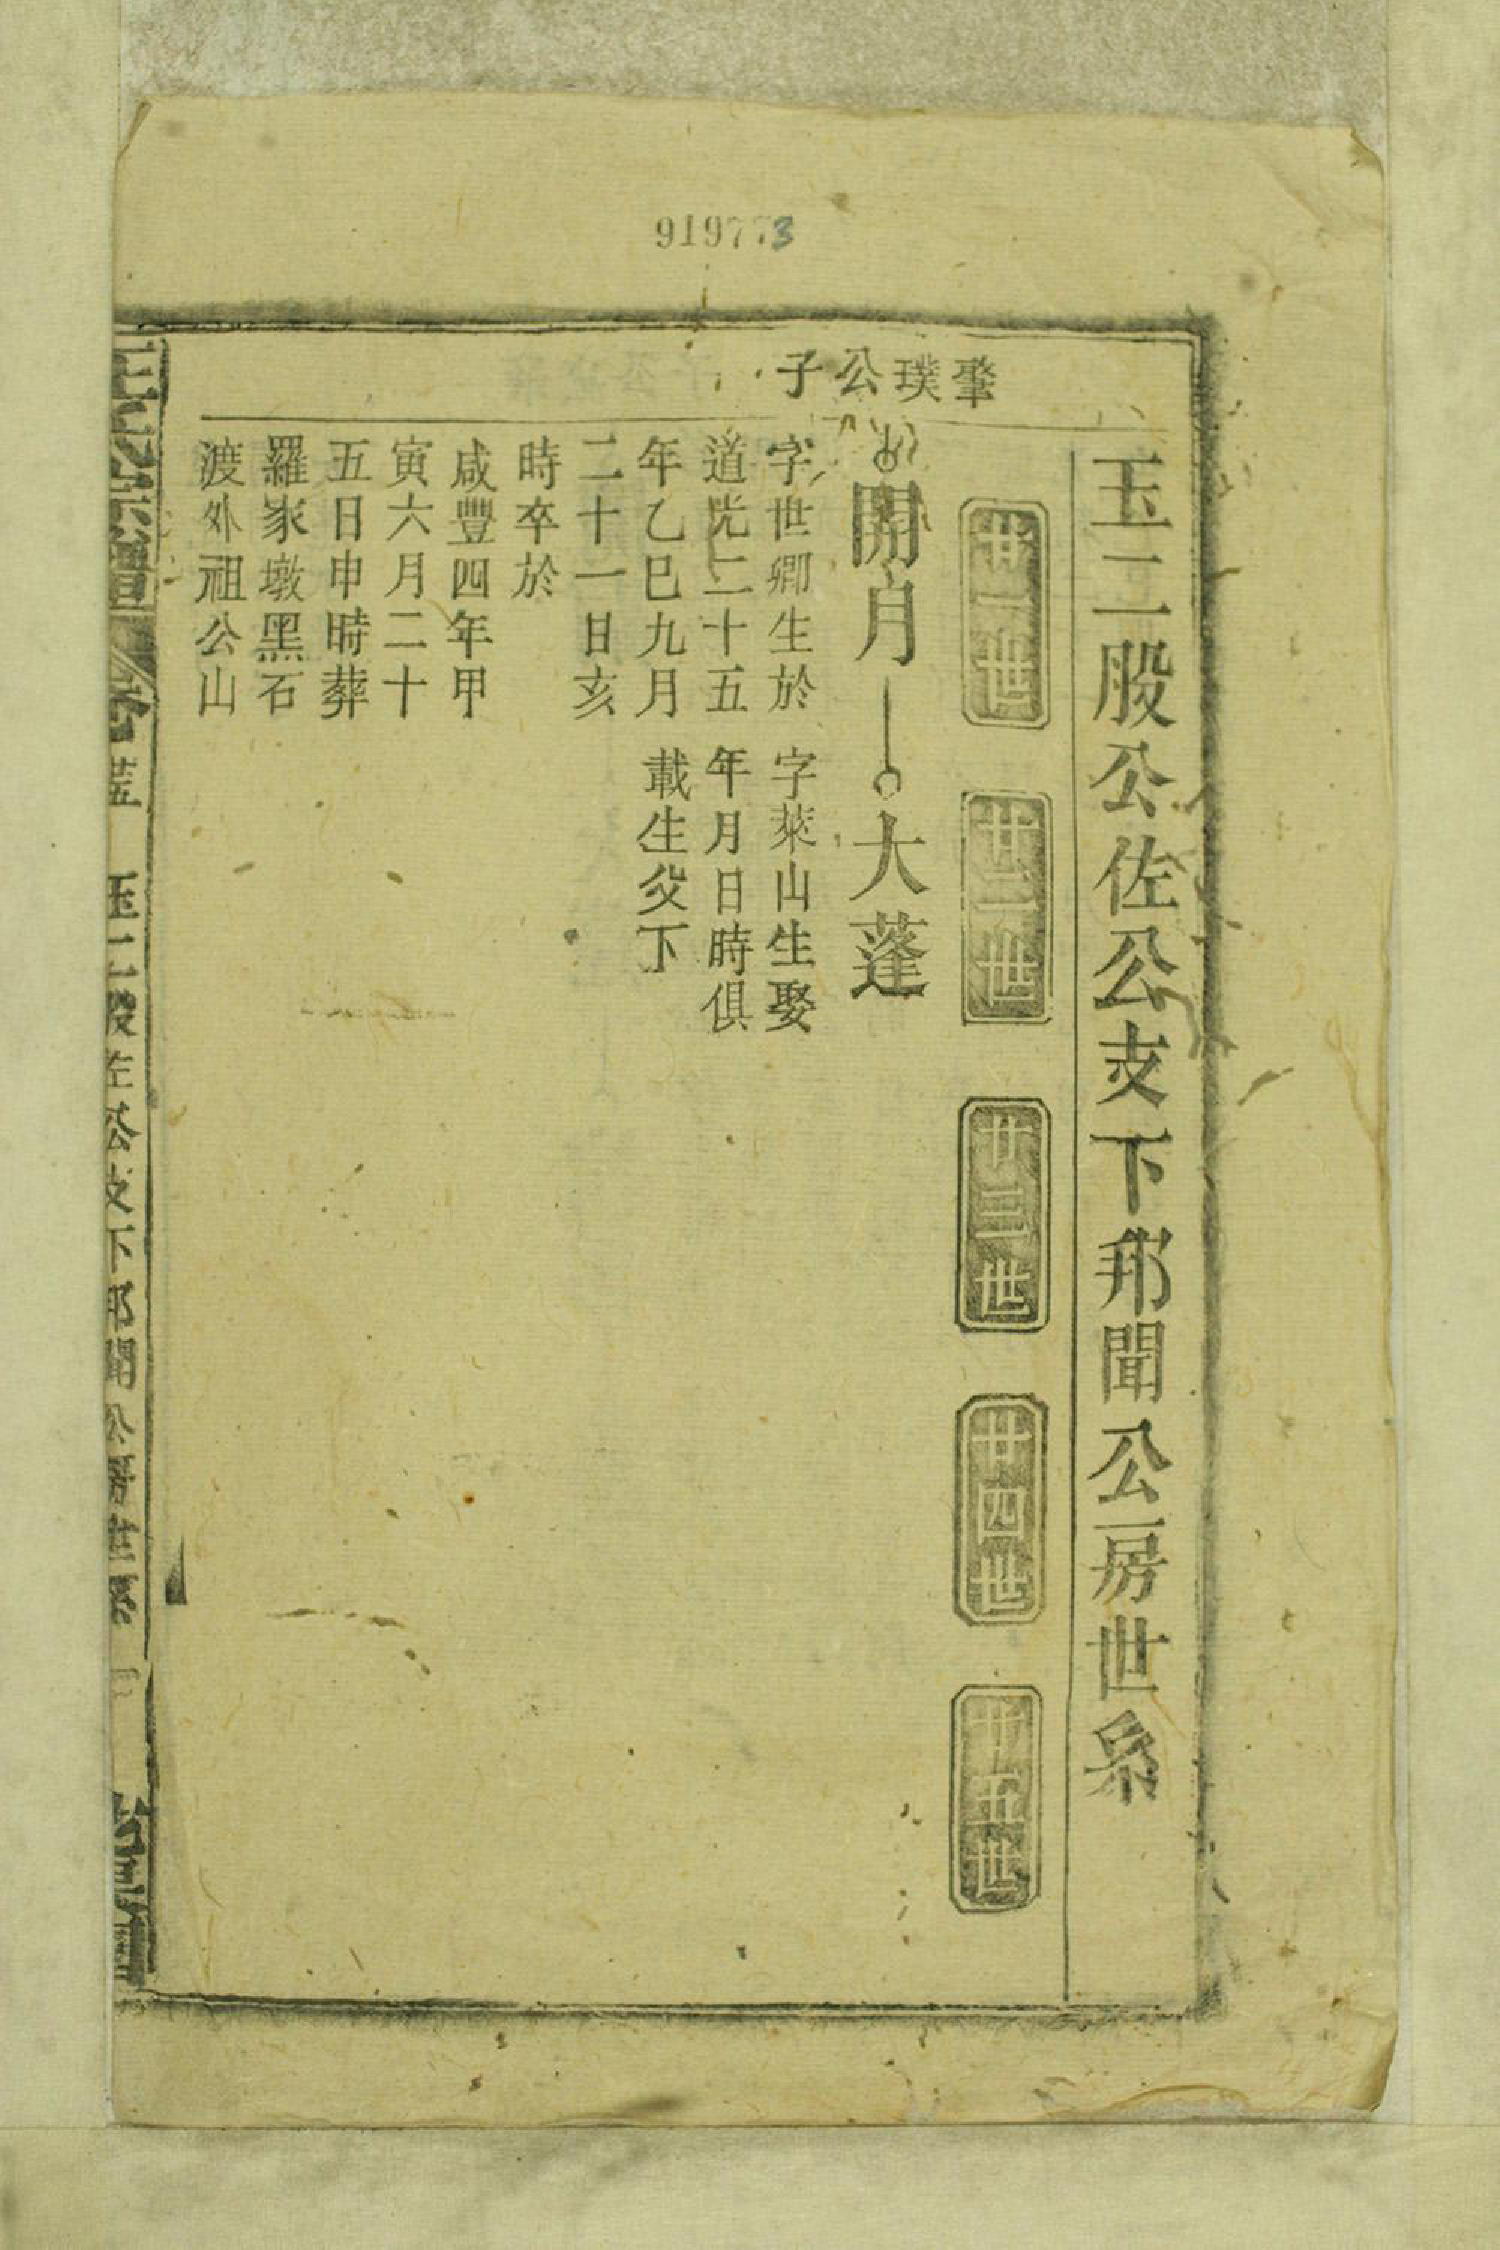 919773
玉二股公佐公支下邦聞公房世系
廿一世
廿二世
廿三世
廿四世
廿五世
肇璞公子
開月
大蓬
字世卿生於
道光二十五
年乙巳九月
二十一日亥
時卒於
咸豐四年甲
寅六月二十
五日申時葬
羅家墩黑石
渡外祖公山
字萊山生娶
年月日時俱
載生父下
氏宗譜
卷
玉二股左公支下邦聞公房世系